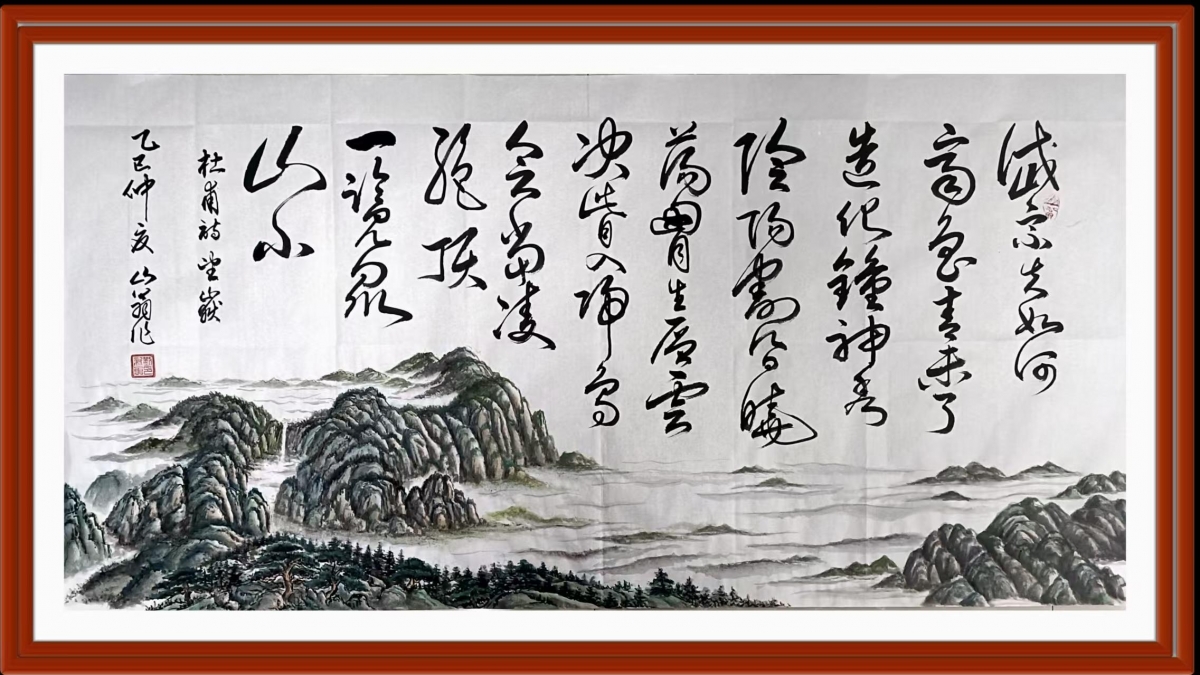 岱宗夫如何
齊魯青未了
造化鐘神秀
陰陽割昏曉
蕩胷生層雲
决眥入歸鳥
會當凌
絶頂
一覽衆
山小
杜甫詩望嶽
乙巳仲夏山翁作